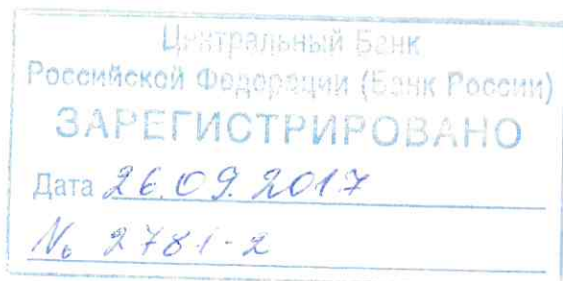 Центральный Банк
Российской Федерации (Банк России)
ЗАРЕГИСТРИРОВАНО
Дата 26.09.2017
№ 2781-2